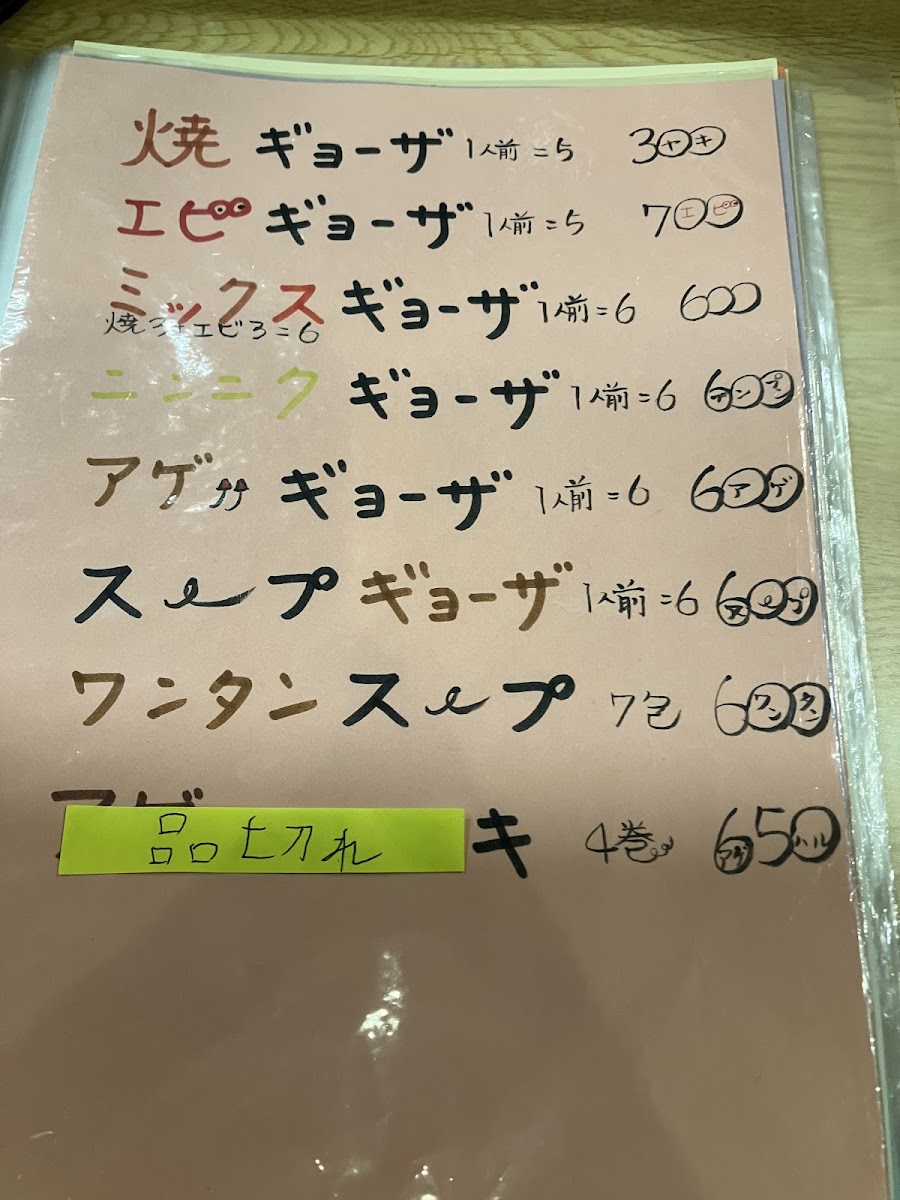 焼ギョーザ 1人前=5 300 ヤキ
エビギョーザ 1人前=5 700 エビ
ミックスギョーザ 1人前=6 600
焼3+エビ3=6
ニンニクギョーザ 1人前=6 600
アゲギョーザ 1人前=6 600 アゲ
スープギョーザ 1人前=6 600 スープ
ワンタンスープ 7包 600 ワンタン
アゲ キ 4巻 650 アゲ ハル
品切れ